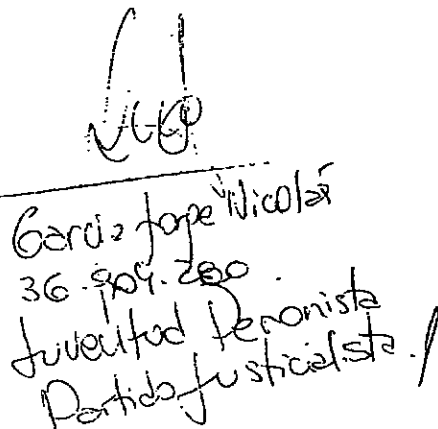 Garcia Jorge Nicolás
36.904.280
Juventud Peronista
Partido Justicialista.